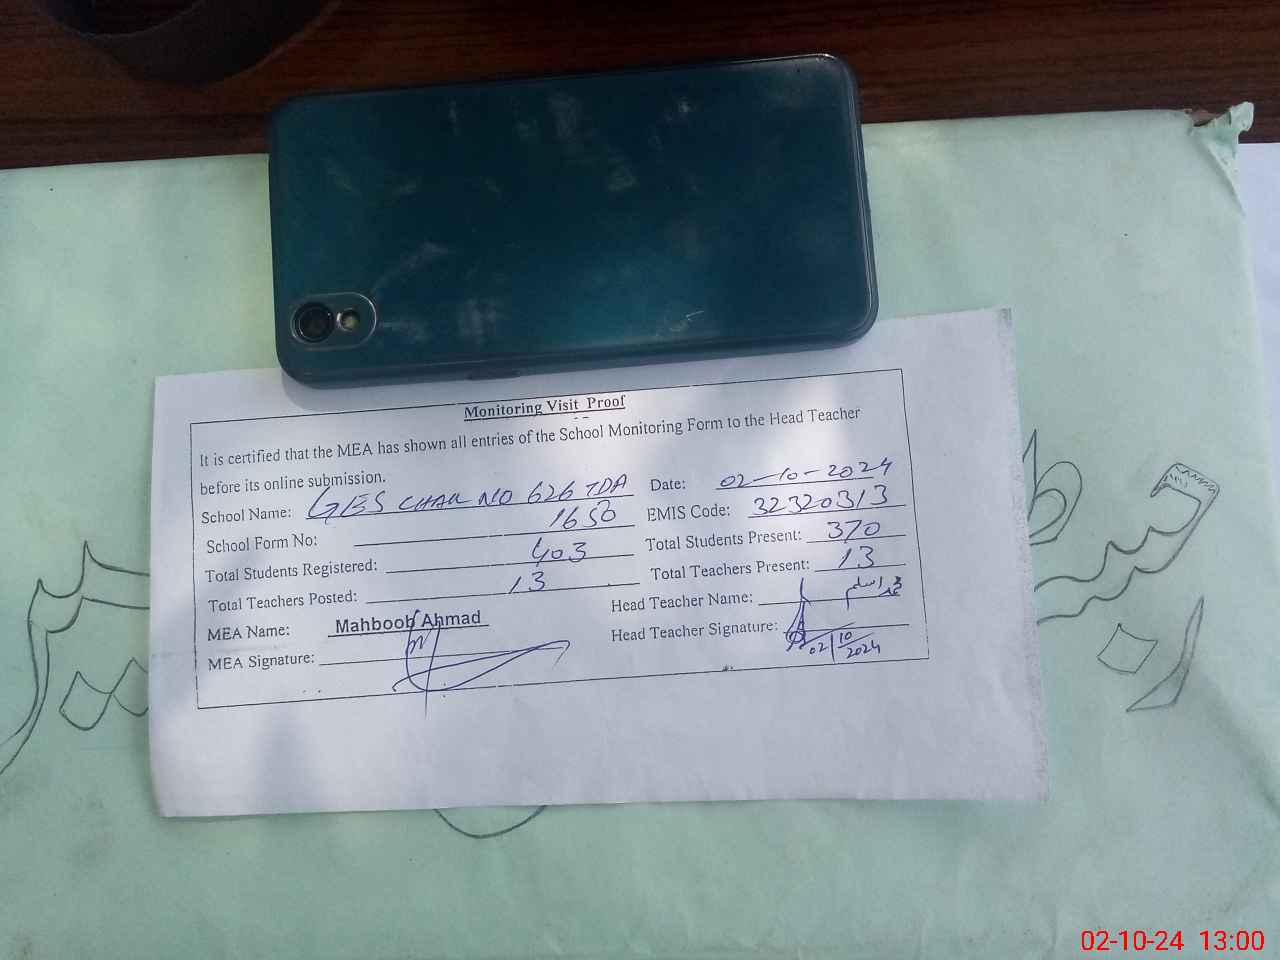 Monitoring Visit Proof
It is certified that the MEA has shown all entries of the School Monitoring Form to the Head Teacher
before its online submission.
School Name: GES CHAK NO 626 TDA Date: 02-10-2024
School Form No: 1650 EMIS Code: 32320313
Total Students Registered: 403 Total Students Present: 370
Total Teachers Posted: 13 Total Teachers Present: 13
MEA Name: Mahboob Ahmad Head Teacher Name: محمد اسلم
MEA Signature: Head Teacher Signature:
02/10/2024
02-10-24 13:00